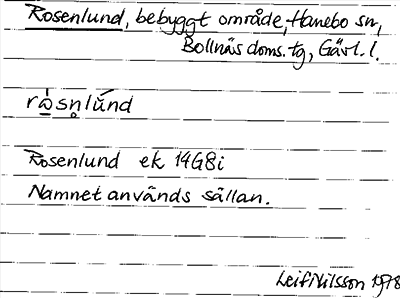 Rosenlund, bebyggt område, Hanebo sn,
Bollnäs doms. tg, Gävl. l.
rò̱sn̥lúnd
Rosenlund ek 14G8i
Namnet används sällan.
Leif Nilsson 1978